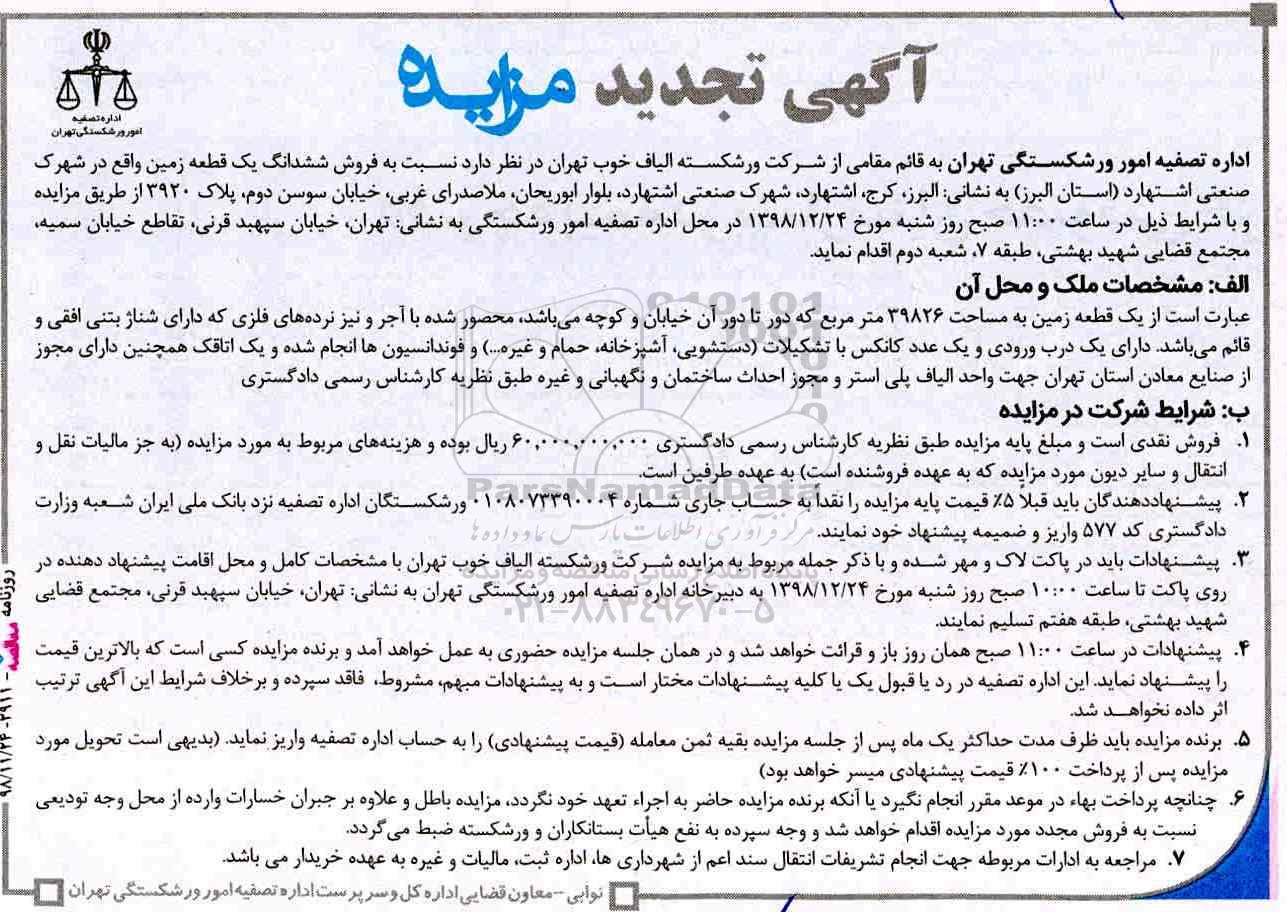 آگهی تجدید مزایده
اداره تصفیه
امور ورشکستگی تهران
اداره تصفیه امور ورشکستگی تهران به قائم مقامی از شرکت ورشکسته الیاف خوب تهران در نظر دارد نسبت به فروش ششدانگ یک قطعه زمین واقع در شهرک
صنعتی اشتهارد (استان البرز) به نشانی: البرز، کرج، اشتهارد، شهرک صنعتی اشتهارد، بلوار ابوریحان، ملاصدرای غربی، خیابان سوسن دوم، پلاک ۳۹۲۰ از طریق مزایده
و با شرایط ذیل در ساعت ۱۱:۰۰ صبح روز شنبه مورخ ۱۳۹۸/۱۲/۲۴ در محل اداره تصفیه امور ورشکستگی به نشانی: تهران، خیابان سپهبد قرنی، تقاطع خیابان سمیه،
مجتمع قضایی شهید بهشتی، طبقه ۷، شعبه دوم اقدام نماید.
الف: مشخصات ملک و محل آن
عبارت است از یک قطعه زمین به مساحت ۳۹۸۲۶ متر مربع که دور تا دور آن خیابان و کوچه می‌باشد، محصور شده با آجر و نیز نرده‌های فلزی که دارای شناژ بتنی افقی و
قائم می‌باشد. دارای یک درب ورودی و یک عدد کانکس با تشکیلات (دستشویی، آشپزخانه، حمام و غیره...) و فوندانسیون ها انجام شده و یک اتاقک همچنین دارای مجوز
از صنایع معادن استان تهران جهت واحد الیاف پلی استر و مجوز احداث ساختمان و نگهبانی و غیره طبق نظریه کارشناس رسمی دادگستری
ب: شرایط شرکت در مزایده
۱. فروش نقدی است و مبلغ پایه مزایده طبق نظریه کارشناس رسمی دادگستری ۶۰,۰۰۰,۰۰۰,۰۰۰ ریال بوده و هزینه‌های مربوط به مورد مزایده (به جز مالیات نقل و
انتقال و سایر دیون مورد مزایده که به عهده فروشنده است) به عهده طرفین است.
۲. پیشنهاددهندگان باید قبلاً ۵٪ قیمت پایه مزایده را نقداً به حساب جاری شماره ۰۱۰۸۰۷۳۳۹۰۰۰۴ ورشکستگان اداره تصفیه نزد بانک ملی ایران شعبه وزارت
دادگستری کد ۵۷۷ واریز و ضمیمه پیشنهاد خود نمایند.
۳. پیشنهادات باید در پاکت لاک و مهر شده و با ذکر جمله مربوط به مزایده شرکت ورشکسته الیاف خوب تهران با مشخصات کامل و محل اقامت پیشنهاد دهنده در
روی پاکت تا ساعت ۱۰:۰۰ صبح روز شنبه مورخ ۱۳۹۸/۱۲/۲۴ به دبیرخانه اداره تصفیه امور ورشکستگی تهران به نشانی: تهران، خیابان سپهبد قرنی، مجتمع قضایی
شهید بهشتی، طبقه هفتم تسلیم نمایند.
۴. پیشنهادات در ساعت ۱۱:۰۰ صبح همان روز باز و قرائت خواهد شد و در همان جلسه مزایده حضوری به عمل خواهد آمد و برنده مزایده کسی است که بالاترین قیمت
را پیشنهاد نماید. این اداره تصفیه در رد یا قبول یک یا کلیه پیشنهادات مختار است و به پیشنهادات مبهم، مشروط، فاقد سپرده و برخلاف شرایط این آگهی ترتیب
اثر داده نخواهد شد.
۵. برنده مزایده باید ظرف مدت حداکثر یک ماه پس از جلسه مزایده بقیه ثمن معامله (قیمت پیشنهادی) را به حساب اداره تصفیه واریز نماید. (بدیهی است تحویل مورد
مزایده پس از پرداخت ۱۰۰٪ قیمت پیشنهادی میسر خواهد بود)
۶. چنانچه پرداخت بهاء در موعد مقرر انجام نگیرد یا آنکه برنده مزایده حاضر به اجراء تعهد خود نگردد، مزایده باطل و علاوه بر جبران خسارات وارده از محل وجه تودیعی
نسبت به فروش مجدد مورد مزایده اقدام خواهد شد و وجه سپرده به نفع هیأت بستانکاران و ورشکسته ضبط می‌گردد.
۷. مراجعه به ادارات مربوطه جهت انجام تشریفات انتقال سند اعم از شهرداری ها، اداره ثبت، مالیات و غیره به عهده خریدار می باشد.
نوابی - معاون قضایی اداره کل و سرپرست اداره تصفیه امور ورشکستگی تهران
روزنامه مناقصه - ۲۹۱۱ - ۹۸/۱۱/۲۴
ParsNamadData
مرکز فرآوری اطلاعات پارس نماد داده ها
پایگاه اطلاع رسانی مناقصه و مزایده
۰۲۱-۸۸۳۴۹۶۷۰-۵